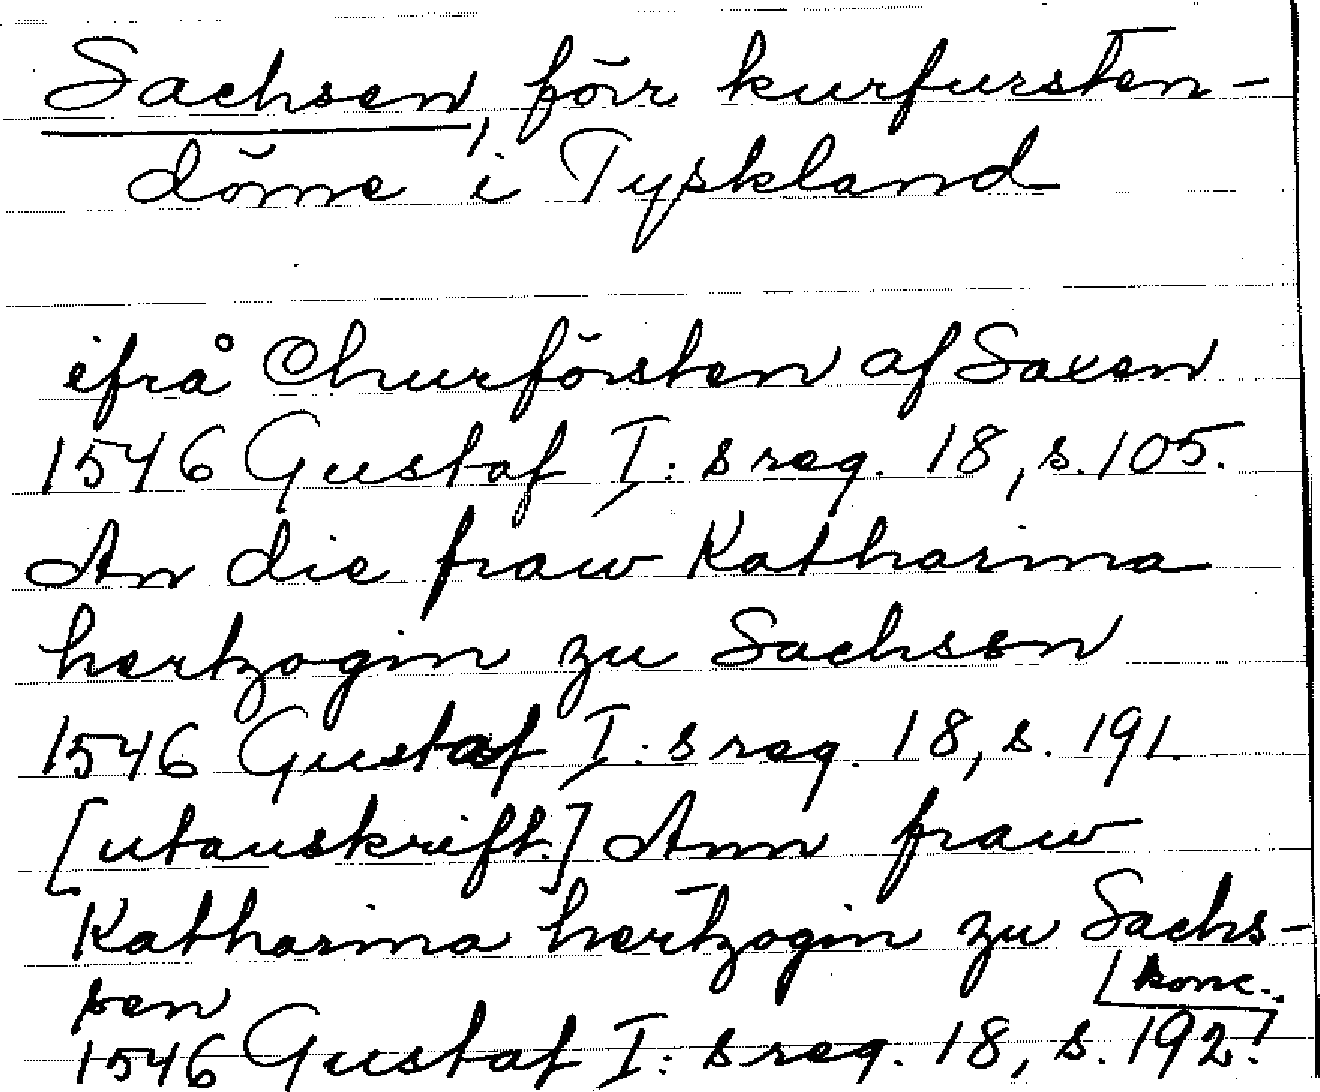 Sachsen, förr kurfursten-
döme i Tyskland
ifrå Churförsten af Saxen
1546 Gustaf I:s reg. 18, s. 105.
An die fraw Katharina
hertzogin zu Sachsen
1546 Gustaf I:s reg. 18, s. 191.
[utanskrift.] Ann fraw
Katharina hertzogin zu Sachs-
sen [konc.
1546 Gustaf I:s reg. 18, s. 192.